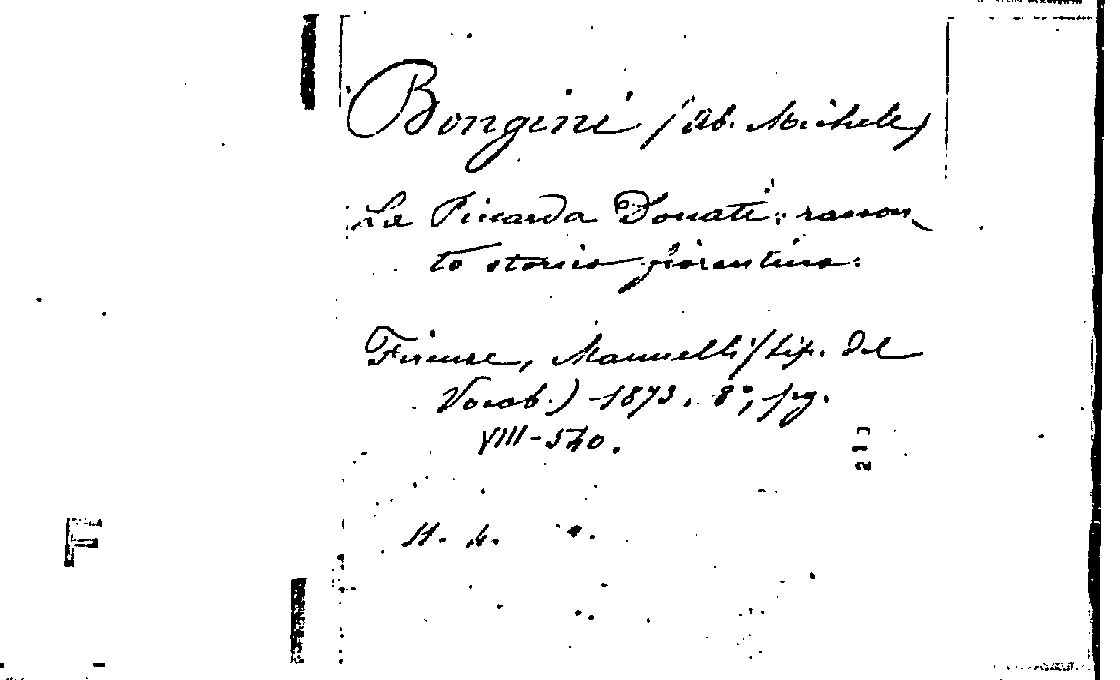 Bongini (Ab. Michele)
La Piccarda Donati: raccon-
to storico fiorentino.
Firenze, Mannelli (tip. del
Vocab.) - 1873. 8°, pg.
VIII-540.
213
H. 4.
F